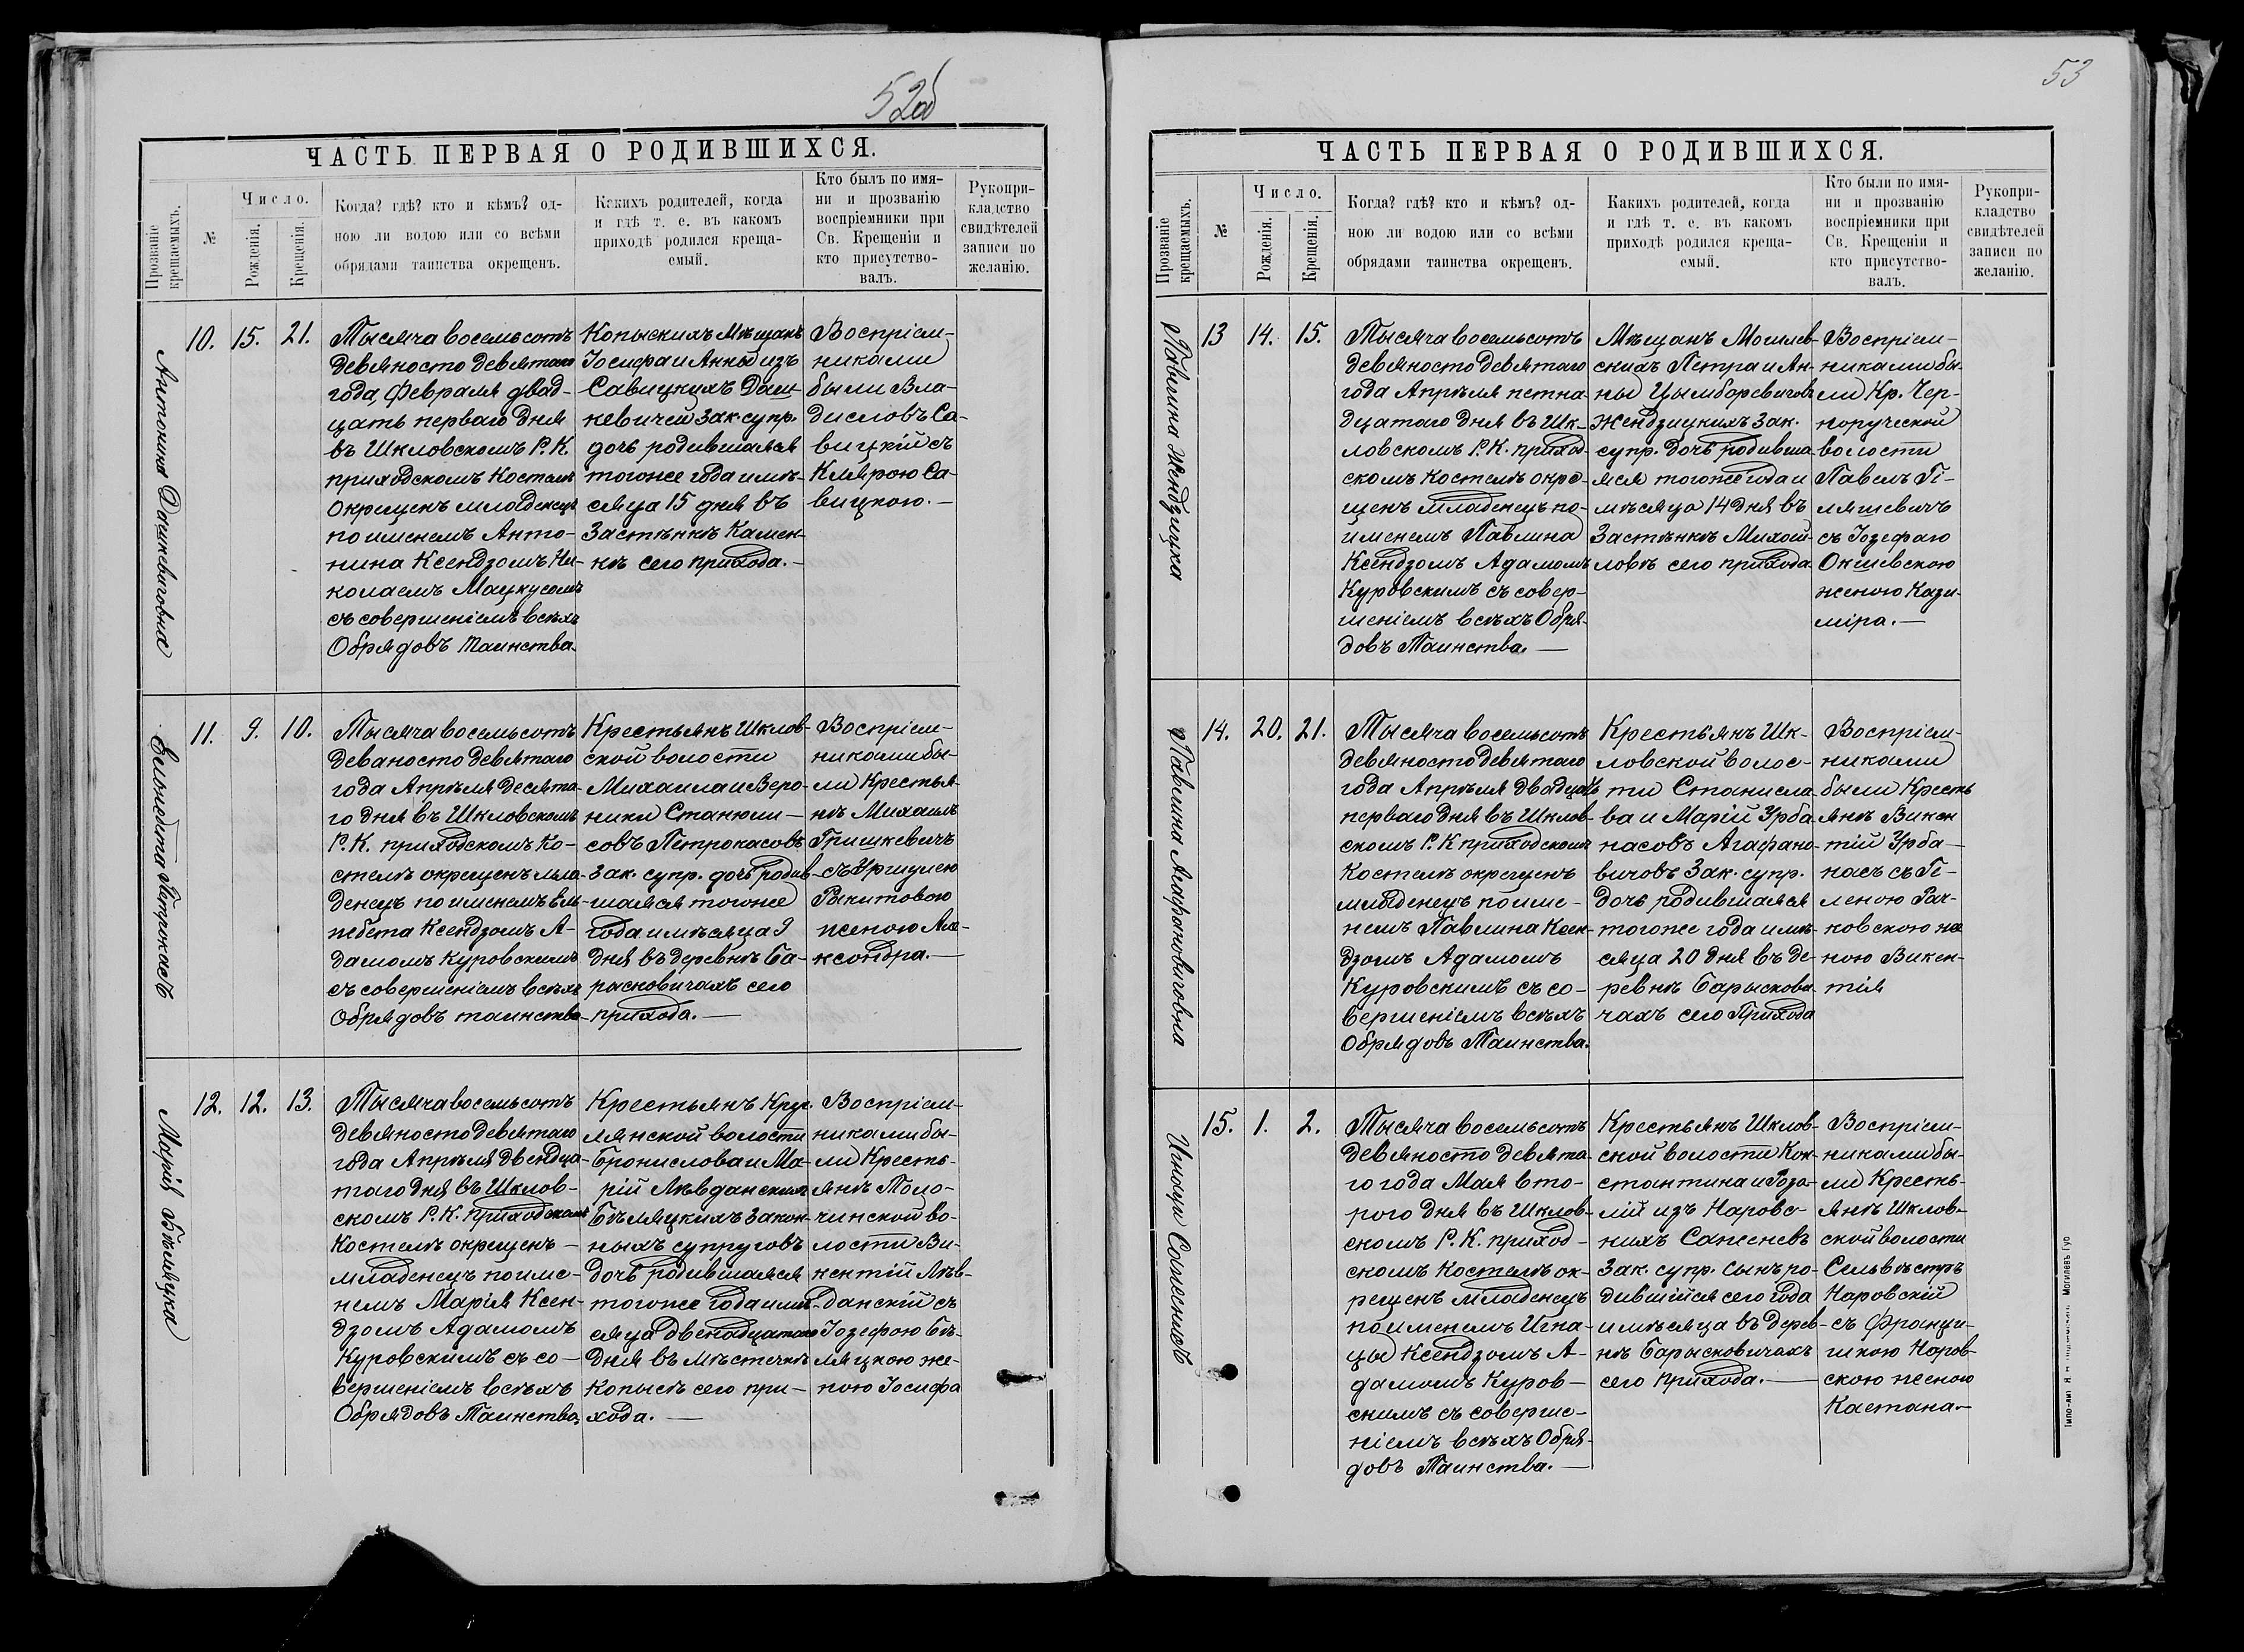 52об
ЧАСТЬ ПЕРВАЯ О РОДИВШИХСЯ.
Прозваніе
крещаемыхъ.
№
Число.
Рожденія.
Крещенія.
Когда? гдѣ? кто и кѣмъ? од-
ною ли водою или со всѣми
обрядами таинства окрещенъ.
Какихъ родителей, когда
и гдѣ т. е. въ какомъ
приходѣ родился креща-
емый.
Кто былъ по имя-
ни и прозванію
воспріемники при
Св. Крещеніи и
кто присутство-
валъ.
Рукопри-
кладство
свидѣтелей
записи по
желанію.
Антонина Дашкевичовна
10.
15.
21.
Тысяча восемьсотъ
девяносто девятаго
года, Февраля двад-
цать перваго дня
въ Шкловскомъ Р. К.
приходскомъ Костелѣ
окрещенъ младенецъ
по именемъ Анто-
нина Ксендзомъ Ни-
колаемъ Мацкусомъ
съ совершеніемъ всѣхъ
Обрядовъ таинства.
Копыскихъ Мѣщанъ
Іосифа и Анны изъ
Савицкихъ Даш-
кевичей Зак. супр.
дочь родившаяся
тогоже года и мѣ-
сяца 15 дня въ
Застѣнкѣ Камен-
кѣ сего прихода.-
Воспріем-
никами
были Вла-
диславъ Са-
вицкій съ
Клярою Са-
вицкою.-
Ельжбета Петрокасъ
11.
9.
10.
Тысяча восемьсотъ
девяносто девятаго
года Апрѣля десята-
го дня въ Шкловскомъ
Р. К. приходскомъ Ко-
стелѣ окрещенъ мла-
денецъ по именемъ Ель-
жбета Ксендзомъ А-
дамомъ Куровскимъ
съ совершеніемъ всѣхъ
Обрядовъ таинства-
Крестьянъ Шклов-
ской волости
Михаила и Веро-
ники Станюли-
совъ Петрокасовъ
Зак. супр. дочь родив-
шаяся тогоже
года и мѣсяца 9
дня въ деревнѣ Ба-
расковичахъ сего
прихода.-
Воспріем-
никами бы-
ли Крестья-
нѣ Михаилъ
Гришкевичъ
съ Уршулею
Ракитовою
женою Але-
ксандра.-
Марія Бѣляцка
12.
12.
13.
Тысяча восемьсотъ
девяносто девятаго
года Апрѣля двендца-
таго дня въ Шклов-
скомъ Р. К. приходскомъ
Костелѣ окрещенъ-
младенецъ по име-
немъ Марія Ксен-
дзомъ Адамомъ
Куровскимъ съ со-
вершеніемъ всѣхъ
Обрядовъ Таинства.
Крестьянъ Круг-
лянской волости
Бронислова и Ма-
рій Лѣвданскихъ
Бѣляцкихъ закон-
ныхъ супруговъ
дочь родившаяся
тогоже года и мѣ-
сяца двенадцатаго
дня въ мѣстечкѣ
Копысѣ сего при-
хода.-
Воспріем-
никами бы-
ли Кресть-
янѣ Толо-
чинской во-
лости Ви-
кентій Лѣв-
данскій съ
Іозефою Бѣ-
ляцкою же-
ною Іосифа
53
ЧАСТЬ ПЕРВАЯ О РОДИВШИХСЯ.
Прозваніе
крещаемыхъ.
№
Число.
Рожденія.
Крещенія.
Когда? гдѣ? кто и кѣмъ? од-
ною ли водою или со всѣми
обрядами таинства окрещенъ.
Какихъ родителей, когда
и гдѣ т. е. въ какомъ
приходѣ родился креща-
емый.
Кто были по имя-
ни и прозванію
воспріемники при
Св. Крещеніи и
кто присутство-
валъ.
Рукопри-
кладство
свидѣтелей
записи по
желанію.
Павлина Жендзицка
13
14.
15.
Тысяча восемьсотъ
девяносто девятаго
года Апрѣля петна-
дцатаго дня въ Шк-
ловскомъ Р. К. приход-
скомъ Костелѣ окре-
щенъ младенецъ по-
именемъ Павлина
Ксендзомъ Адамомъ
Куровскимъ съ совер-
шеніемъ всѣхъ Обря-
довъ Таинства.-
Мѣщанъ Могилев-
скихъ Петра и Ан-
ны Цымборевичовъ
Жендзицкихъ Зак.
супр. дочь родивша-
яся тогоже года и
мѣсяца 14 дня въ
Застѣнкѣ Михай-
ловѣ сего прихода
Воспріем-
никами бы-
ли Кр. Чер-
норуческой
волости
Павелъ Ги-
ляшевичъ
съ Іозефаю
Окшевскою
женою Кази-
міра.-
Павлина Агафановичовна
14.
20.
21.
Тысяча восемьсотъ
девяносто девятаго
года Апрѣля двадцать
перваго дня въ Шклов-
скомъ Р. К приходскомъ
Костелѣ окрещенъ
младенецъ по име-
немъ Павлина Ксен-
дзомъ Адамомъ
Куровскимъ съ со-
вершеніемъ всѣхъ
Обрядовъ Таинства.
Крестьянъ Шк-
ловской волос-
ти Станисла-
ва и Марій Урба
насовъ Агафано-
вичовъ Зак. супр.
дочь родившаяся
тогоже года и мѣ-
сяца 20 дня въ де-
ревнѣ Барыскови-
чахъ сего Прихода
Воспріем-
никами
были Кресть
янѣ Викен
тій Урба-
насъ съ Ге-
леною Рач-
ковскою же
ною Викен-
тія
Игнацы Саженевъ
15.
1.
2.
Тысяча восемьсотъ
девяносто девята-
го года Мая вто-
рого дня въ Шклов-
скомъ Р. К. приход-
скомъ Костелѣ ок-
рещенъ младенецъ
по именемъ Игна-
цы Ксендзомъ А-
дамомъ Куров-
скимъ съ соверше-
ніемъ всѣхъ Обря-
довъ Таинства.-
Крестьянъ Шклов-
ской волости Кон-
стантина и Роза-
лій изъ Наровс-
кихъ Саженевъ
Зак. супр. сынъ ро-
дившійся сего года
и мѣсяца въ дерев-
нѣ Барысковичахъ
сего прихода.-
Воспріем-
никами бы-
ли Кресть-
янѣ Шклов-
ской волости
Сельвѣстръ
Наровскій
съ Франци-
шкою Наров-
скою женою
Каетана.-
Могилевъ Губ